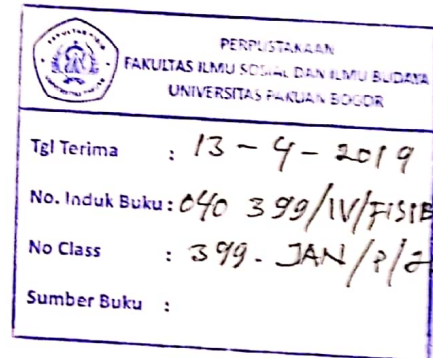 PERPUSTAKAAN
FAKULTAS ILMU SOSIAL DAN ILMU BUDAYA
UNIVERSITAS PAKUAN BOGOR
Tgl Terima : 13-4-2019
No. Induk Buku : 040 399/IV/FISIB
No Class : 399. JAN/P/2
Sumber Buku :